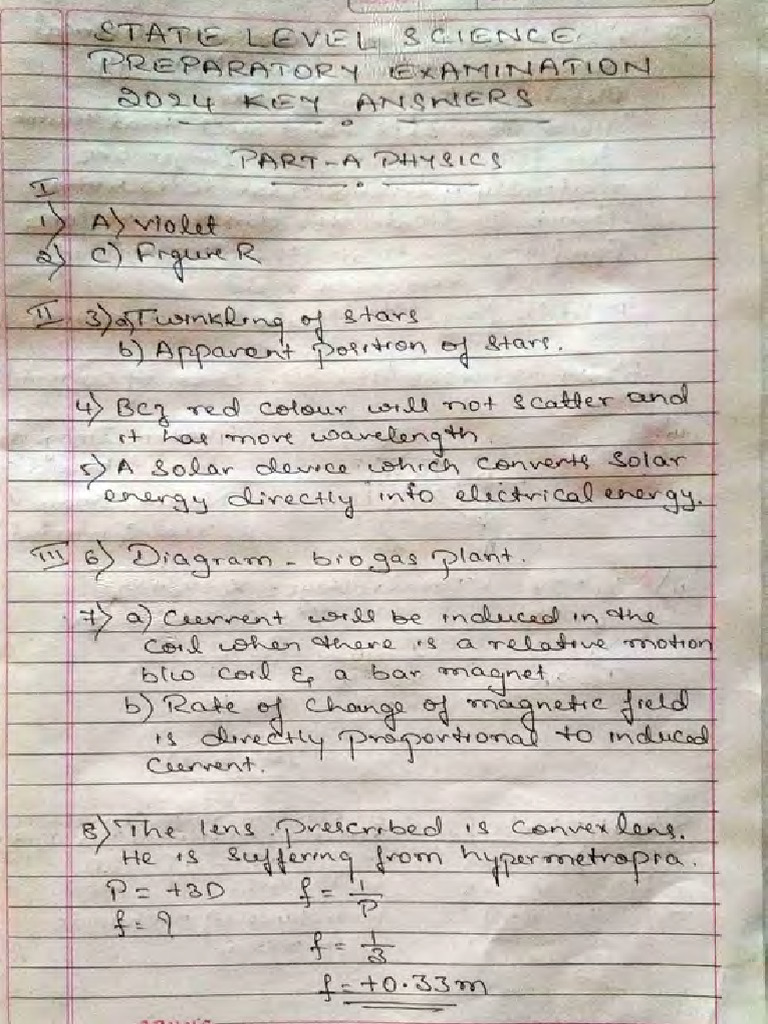 STATE LEVEL SCIENCE
PREPARATORY EXAMINATION
2024 KEY ANSWERS
PART-A PHYSICS
I
1) A) Violet
2) C) Figure R
II 3) a) Twinkling of stars
b) Apparent position of stars.
4) Bcz red colour will not scatter and
it has more wavelength
5) A solar device which converts solar
energy directly into electrical energy.
III 6) Diagram - biogas plant.
7) a) Current will be induced in the
coil when there is a relative motion
b/w coil & a bar magnet.
b) Rate of change of magnetic field
is directly proportional to induced
current.
8) The lens prescribed is convex lens.
He is suffering from hypermetropia.
P = +3D f = 1/P
f = ?
f = 1/3
f = +0.33m